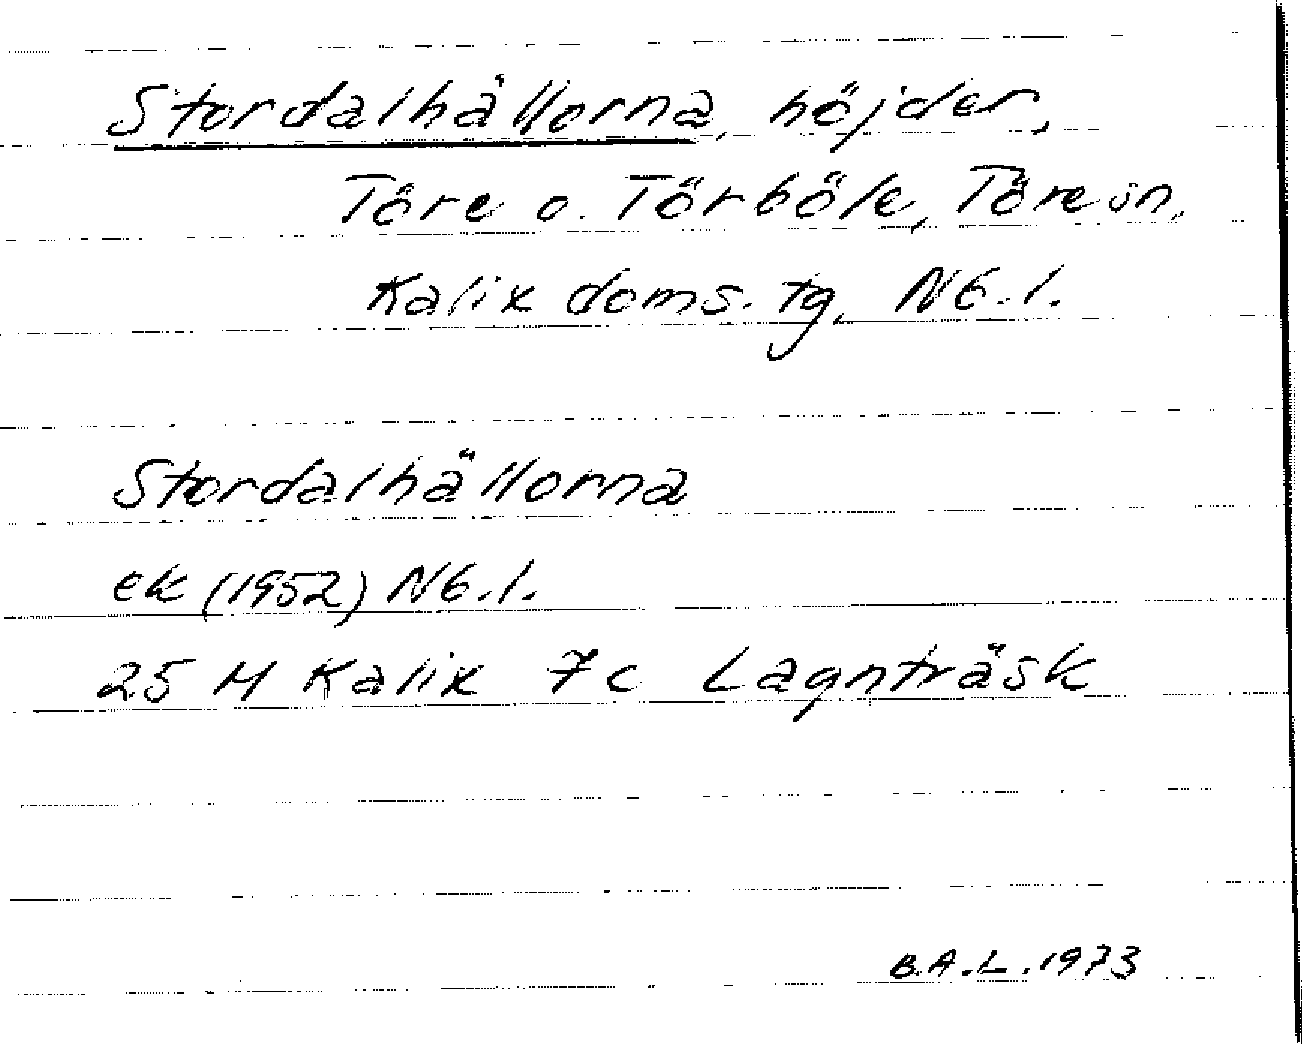 Stordalhällorna, höjder,
Töre o. Törböle, Töre sn,
Kalix doms. tg, Nb. l.
Stordalhällorna
ek (1952) Nb. l.
25 M Kalix 7c Lagnträsk
B.A.L. 1973